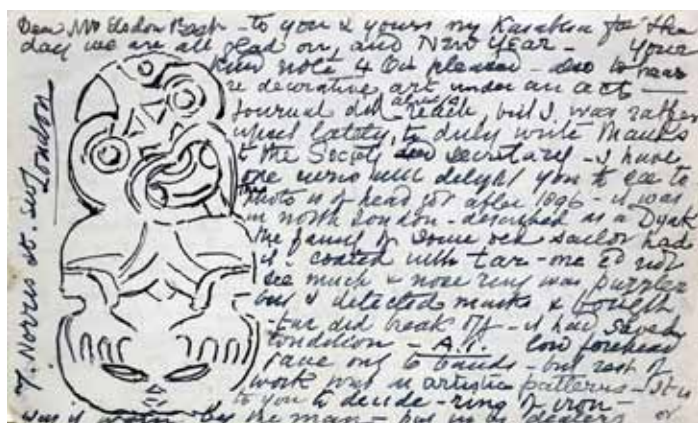 Dear Mr Elsdon Best - to you & yours my for the
day we are all glad on, and New Year - Your
kind note 4 Oct pleased - also to hear
re decorative art under an act -
Journal did reach, but I was rather
upset lately, to duly write thanks
to the Society secretary - I have
one will delight you to see to
photo is of head got after 1896 - it was
in north London - described as a Dyak
the family of some old sailor had
it. coated with tar - one could not
see much & nose ring was puzzler
- but I detected marks & bought
- tar did break off - it had saved
condition - A.1. low forehead
gave only to bands - but rest of
work was in artistic patterns - It is
to you to decide - ring of iron -
was it worn by the man - put in as dealers or
7. Norris St. SW1
London